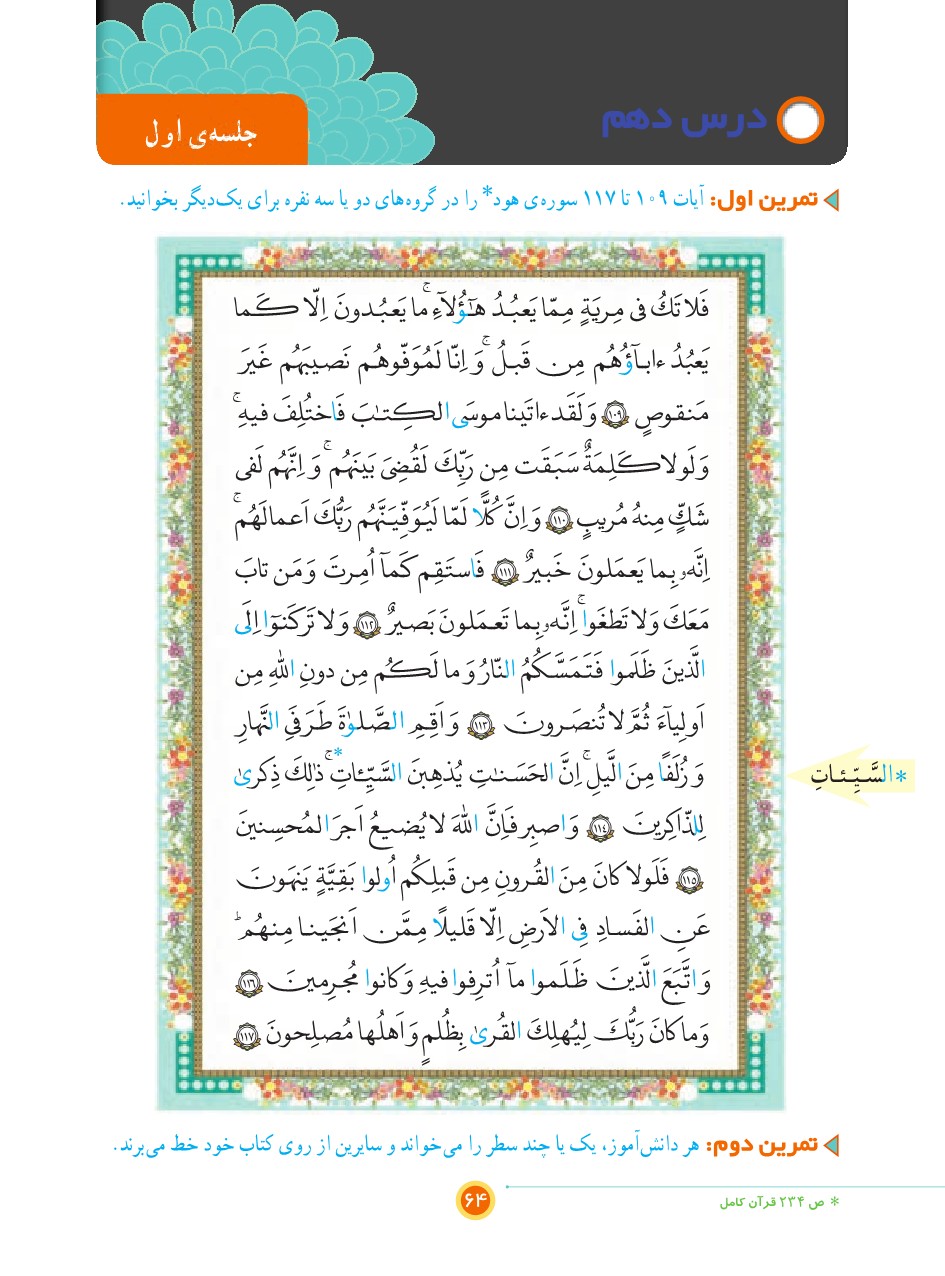 درس دهم
جلسه‌ی اول
تمرین اول: آیات ۱۰۹ تا ۱۱۷ سوره‌ی هود* را در گروه‌های دو یا سه نفره برای یک‌دیگر بخوانید.
فَلا تَكُ فی مِریَةٍ مِمّا یَعبُدُ هٰٓؤُلآءِ ۚ ما یَعبُدونَ اِلّا كَما
یَعبُدُ ءابآؤُهُم مِن قَبلُ ۚ وَ اِنّا لَمُوَفّوهُم نَصیبَهُم غَیرَ
مَنقوصٍ ﴿۱۰۹﴾ وَ لَقَد ءاتَینا موسَی الكِتٰبَ فَاختُلِفَ فیهِ ۚ
وَ لَولا كَلِمَةٌ سَبَقَت مِن رَبِّكَ لَقُضِیَ بَینَهُم ۚ وَ اِنَّهُم لَفی
شَكٍّ مِنهُ مُریبٍ ﴿۱۱۰﴾ وَ اِنَّ كُلًّا لَمّا لَیُوَفِّیَنَّهُم رَبُّكَ اَعمالَهُم ۚ
اِنَّهو بِما یَعمَلونَ خَبیرٌ ﴿۱۱۱﴾ فَاستَقِم كَمآ اُمِرتَ وَ مَن تابَ
مَعَكَ وَ لا تَطغَوا ۚ اِنَّهو بِما تَعمَلونَ بَصیرٌ ﴿۱۱۲﴾ وَ لا تَركَنوٓا اِلَی
الَّذینَ ظَلَموا فَتَمَسَّكُمُ النّارُ وَ ما لَكُم مِن دونِ اللّٰهِ مِن
اَولِیآءَ ثُمَّ لا تُنصَرونَ ﴿۱۱۳﴾ وَ اَقِمِ الصَّلوٰةَ طَرَفَیِ النَّهارِ
وَ زُلَفًا مِنَ الَّیلِ ۚ اِنَّ الحَسَنٰتِ یُذهِبنَ السَّیِّئاتِ* ۚ ذٰلِكَ ذِكریٰ
لِلذّاكِرینَ ﴿۱۱٤﴾ وَ اصبِر فَاِنَّ اللّٰهَ لا یُضیعُ اَجرَ المُحسِنینَ
﴿۱۱۵﴾ فَلَولا كانَ مِنَ القُرونِ مِن قَبلِكُم اُولوا بَقِیَّةٍ یَنهَونَ
عَنِ الفَسادِ فِی الاَرضِ اِلّا قَلیلًا مِمَّن اَنجَینا مِنهُم ۗ
وَ اتَّبَعَ الَّذینَ ظَلَموا مآ اُترِفوا فیهِ وَ كانوا مُجرِمینَ ﴿۱۱۶﴾
وَ ما كانَ رَبُّكَ لِیُهلِكَ القُریٰ بِظُلمٍ وَ اَهلُها مُصلِحونَ ﴿۱۱۷﴾
*السَّـیِّـئـاتِ
تمرین دوم: هر دانش‌آموز، یک یا چند سطر را می‌خواند و سایرین از روی کتاب خود خط می‌برند.
* ص ۲۳۴ قرآن کامل
۶۴